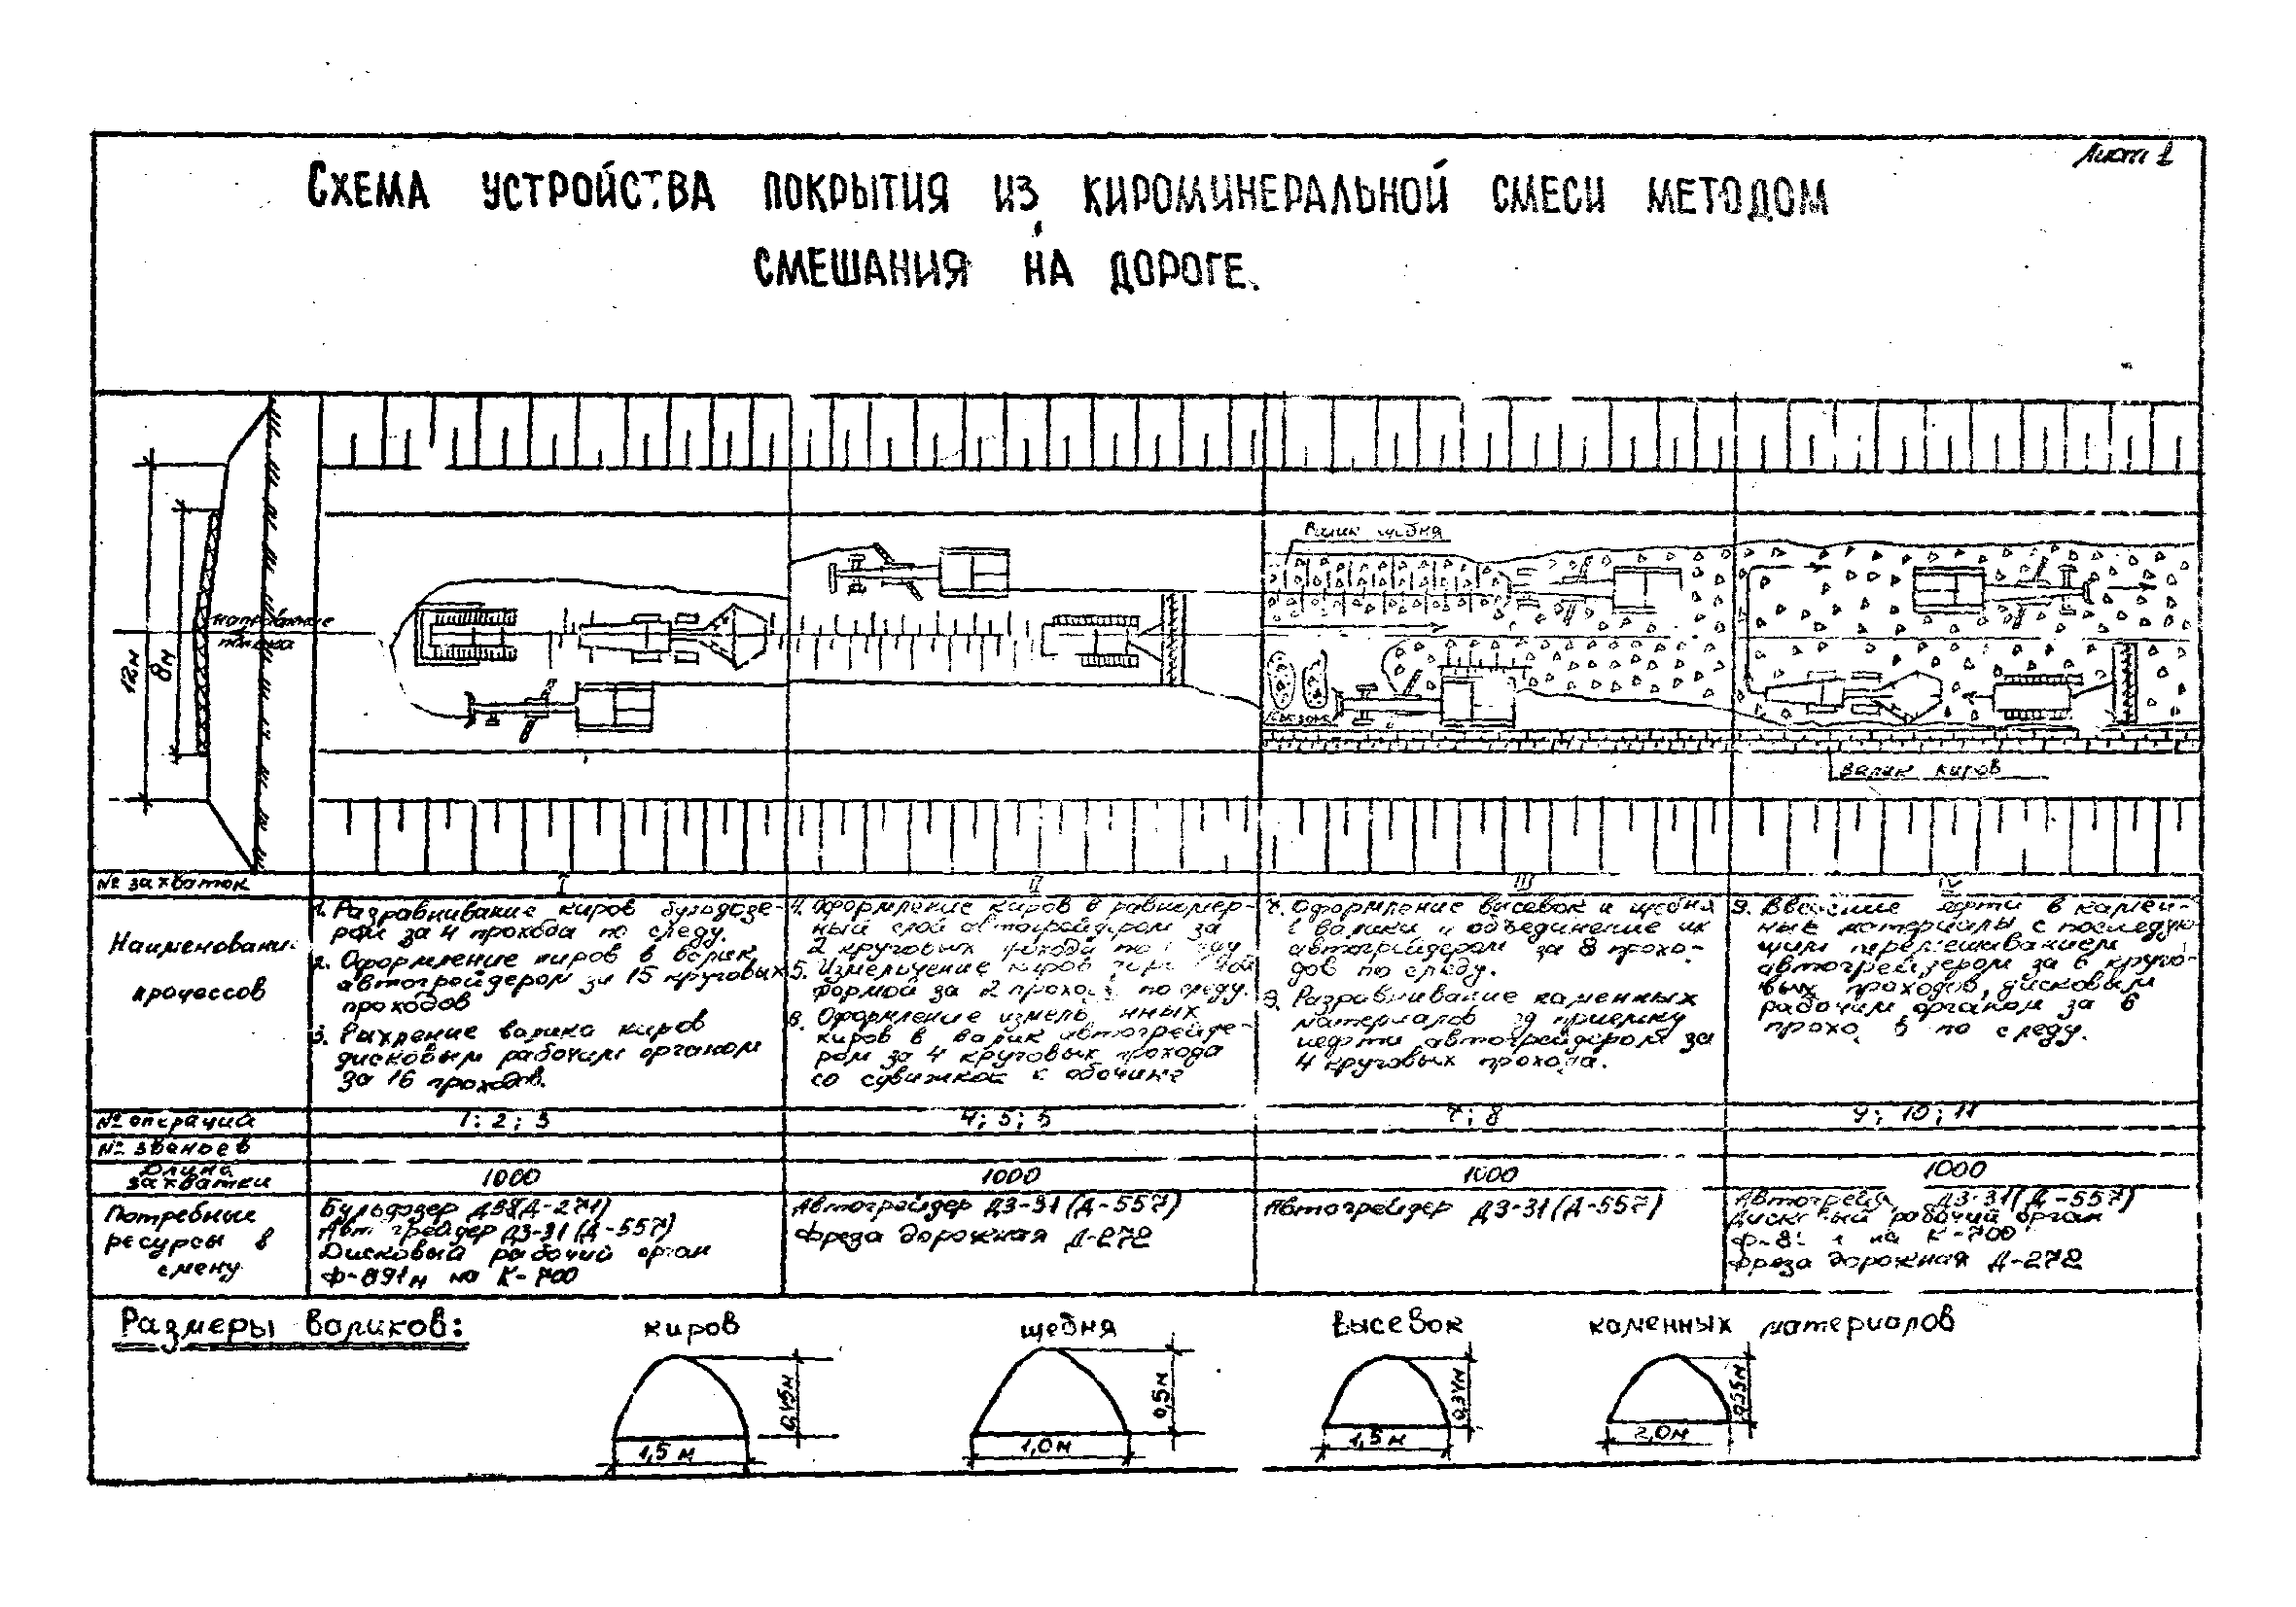 Лист 1
СХЕМА УСТРОЙСТВА ПОКРЫТИЯ ИЗ КИРОМИНЕРАЛЬНОЙ СМЕСИ МЕТОДОМ
СМЕШАНИЯ НА ДОРОГЕ.
Валик щебня
направление
потока
12м
8м
Валик киров
№ захваток
I
II
III
IV
Наименование
процессов
1. Разравнивание киров бульдозе-
ром за 4 прохода по следу.
2. Оформление киров в валик
автогрейдером за 15 круговых
проходов
3. Рыхление валика киров
дисковым рабочим органом
за 16 проходов.
4. Оформление киров в равномер-
ный слой автогрейдером за
2 круговых прохода по следу
5. Измельчение киров
фрмой за 2 прохо по следу.
6. Оформление измель нных
киров в валик автогрейде-
ром за 4 круговых прохода
со сдвижкой к обочине
7. Оформление высевок и щебня
в валики и объединение их
автогрейдером за 8 прохо-
дов по следу.
8. Разравнивание каменных
материалов под приемку
нефти автогрейдером за
4 круговых прохода.
9. Введение нефти в камен-
ные материалы с последую-
щим перемешиванием
автогрейдером за 6 круго-
вых проходов, дисковым
рабочим органом за 6
прохо в по следу.
№ операций
1; 2; 3
4; 5; 6
7; 8
9; 10; 11
№ звеньев
Длина
захватки
1000
1000
1000
1000
Потребные
ресурсы в
смену
Бульдозер Д38(Д-271)
Автогрейдер ДЗ-31(Д-557)
Дисковый рабочий орган
Ф-891м на К-700
Автогрейдер ДЗ-31(Д-557)
Фреза дорожная Д-272
Автогрейдер ДЗ-31(Д-557)
Автогрейд ДЗ-31(Д-557)
Дисковый рабочий орган
на К-700
Фреза дорожная Д-272
Размеры валиков:
киров
щебня
высевок
каменных материалов
0,45м
1,5 м
0,5м
1,0м
0,34м
1,5 м
0,55м
2,0м